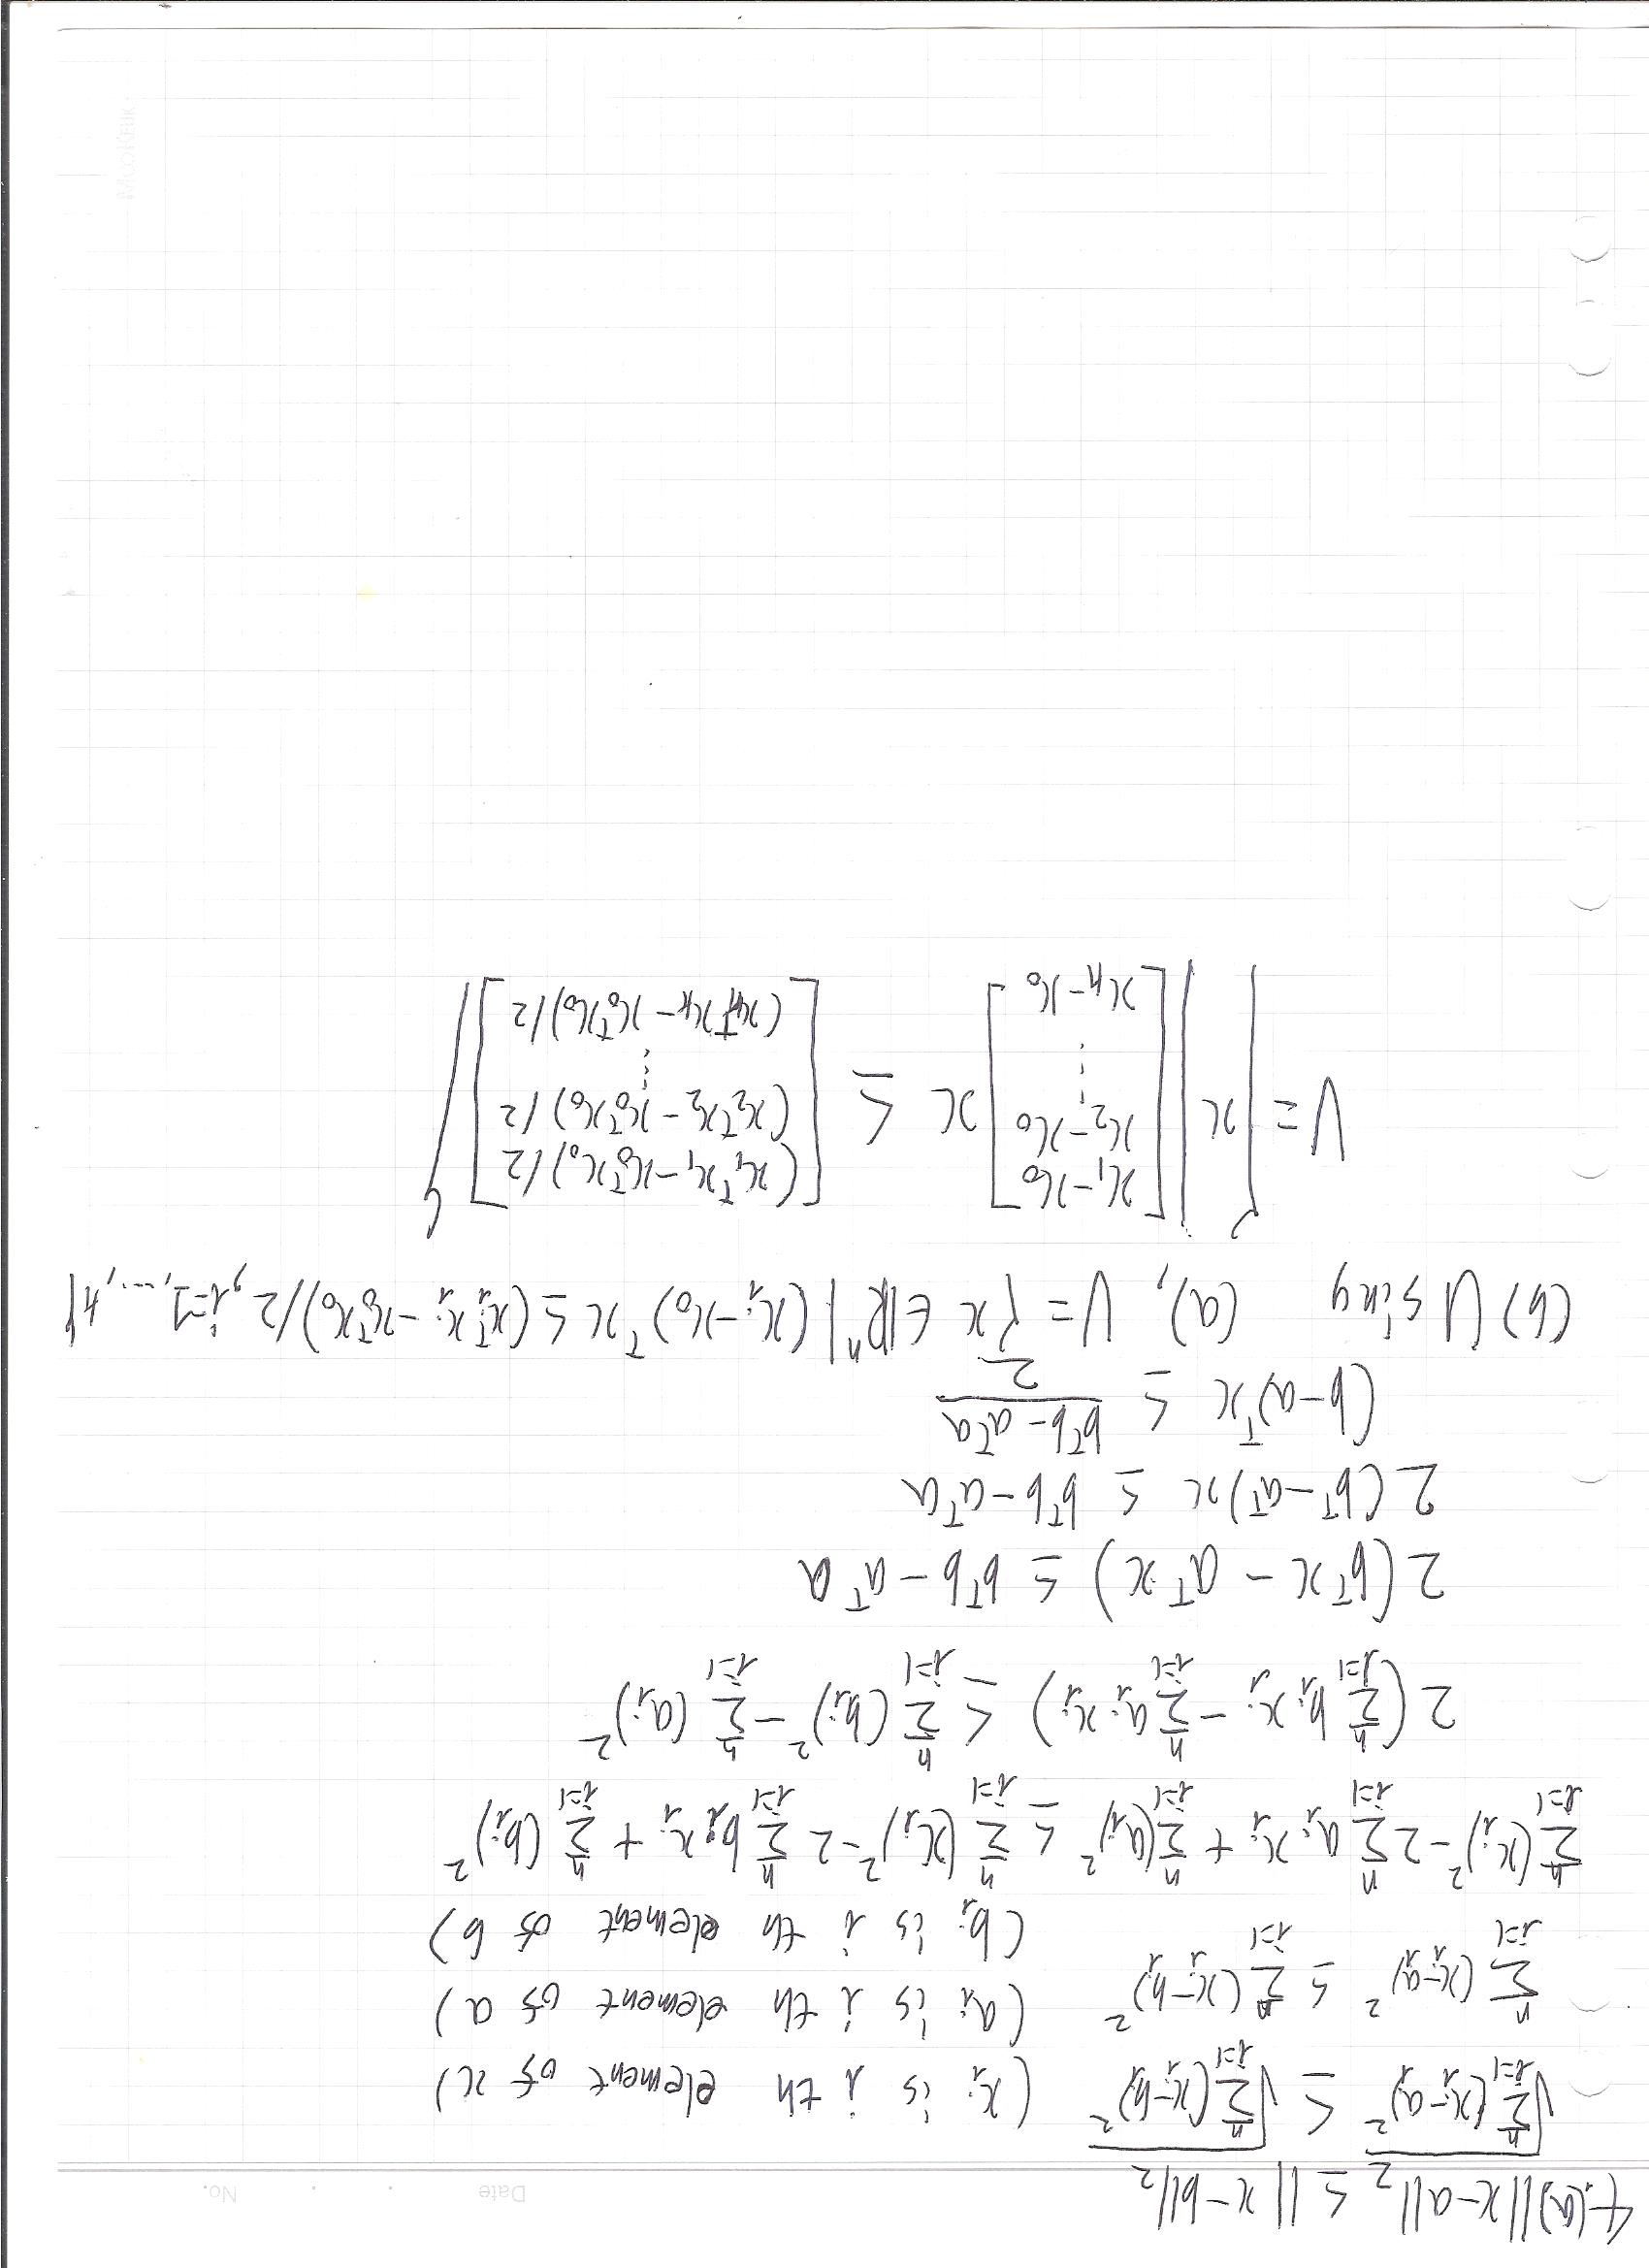 Date . . No.
4.(a) ||x-a||₂ ≤ ||x-b||₂
√(Σ_{i=1}^{n} (x_i-a_i)²) ≤ √(Σ_{i=1}^{n} (x_i-b_i)²) (x_i is i th element of x)
Σ_{i=1}^{n} (x_i-a_i)² ≤ Σ_{i=1}^{n} (x_i-b_i)² (a_i is i th element of a)
(b_i is i th element of b)
Σ_{i=1}^{n} (x_i)² - 2 Σ_{i=1}^{n} a_i x_i + Σ_{i=1}^{n} (a_i)² ≤ Σ_{i=1}^{n} (x_i)² - 2 Σ_{i=1}^{n} b_i x_i + Σ_{i=1}^{n} (b_i)²
2 (Σ_{i=1}^{n} b_i x_i - Σ_{i=1}^{n} a_i x_i) ≤ Σ_{i=1}^{n} (b_i)² - Σ_{i=1}^{n} (a_i)²
2 (bᵀx - aᵀx) ≤ bᵀb - aᵀa
2 (bᵀ-aᵀ)x ≤ bᵀb-aᵀa
(b-a)ᵀx ≤ (bᵀb-aᵀa)/2
(b) Using (a), V = {x ∈ ℝⁿ | (x_i-x_0)ᵀx ≤ (x_iᵀx_i - x_0ᵀx_0)/2, i=1,...,n}
V = {x | [x_1-x_0
x_2-x_0
⋮
x_n-x_0] x ≤ [(x_1ᵀx_1-x_0ᵀx_0)/2
(x_2ᵀx_2-x_0ᵀx_0)/2
⋮
(x_nᵀx_n-x_0ᵀx_0)/2]}